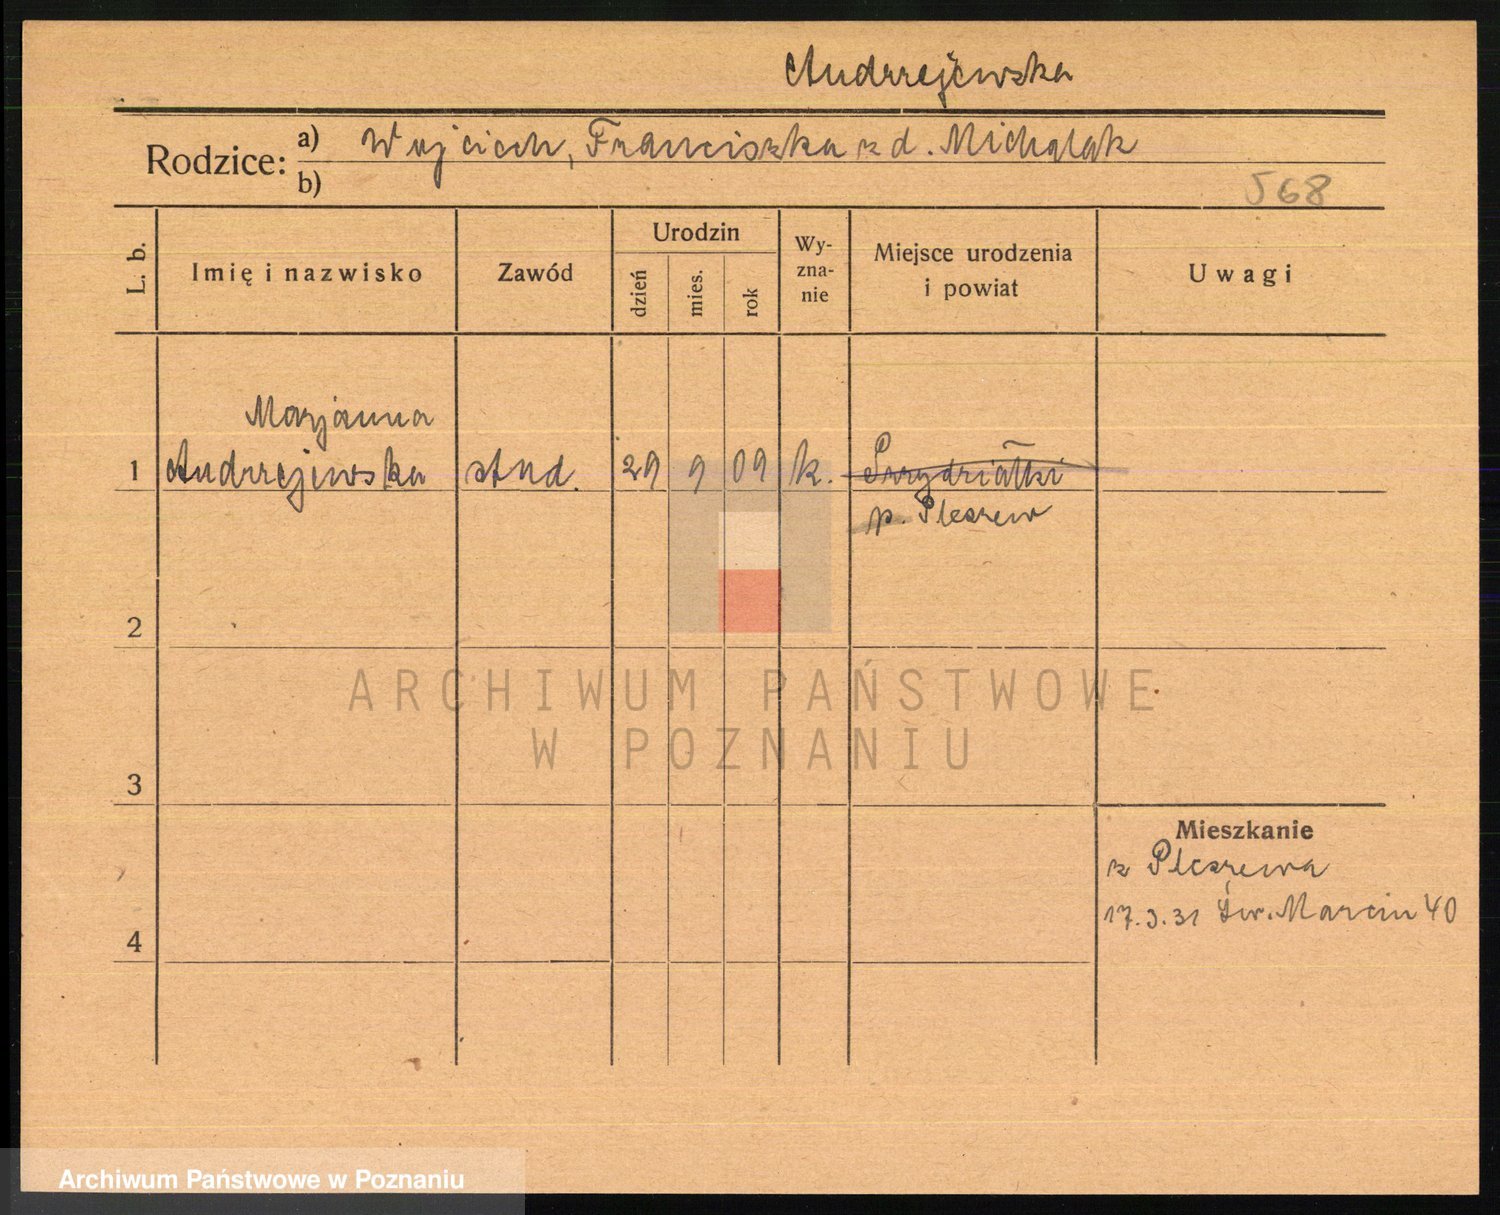 Andrzejewska
Rodzice: a) Wojciech, Franciszka z d. Michalak
b)
568
L. b.
Imię i nazwisko
Zawód
Urodzin
dzień
mies.
rok
Wy-
zna-
nie
Miejsce urodzenia
i powiat
Uwagi
Marjanna
1 Andrzejewska stud. 29 9 09 k.
p. Pleszew
2
ARCHIWUM PAŃSTWOWE
W POZNANIU
3
Mieszkanie
z Pleszewa
17.3.31 Św. Marcin 40
4
Archiwum Państwowe w Poznaniu